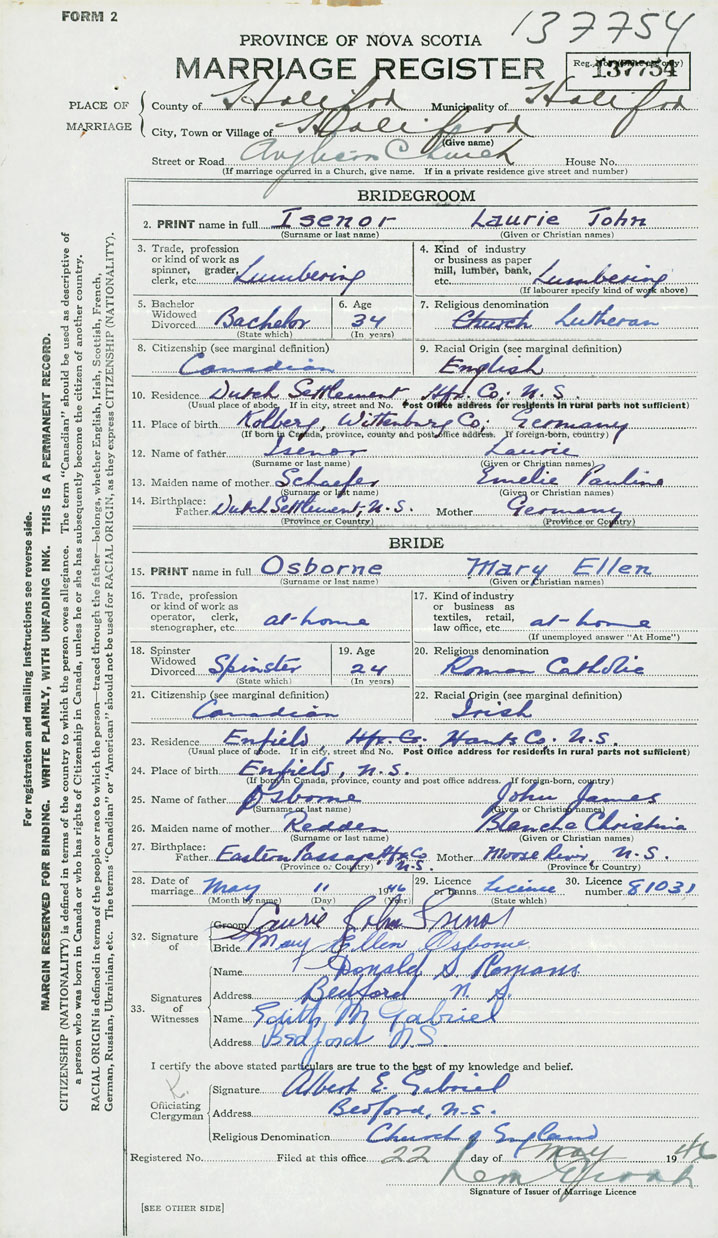 FORM 2
137754
PROVINCE OF NOVA SCOTIA
MARRIAGE REGISTER
137754
PLACE OF MARRIAGE
County of Halifax Municipality of Halifax
City, Town or Village of Halifax
(Give name)
Street or Road Anglican Church House No.
(If marriage occurred in a Church, give name. If in a private residence give street and number)
BRIDEGROOM
2. PRINT name in full Isenor Laurie John
(Surname or last name) (Given or Christian names)
3. Trade, profession or kind of work as spinner, grader, clerk, etc. Lumbering
4. Kind of industry or business as paper mill, lumber, bank, etc. Lumbering
(If labourer specify kind of work above)
5. Bachelor Widowed Divorced Bachelor
(State which)
6. Age 34
(In years)
7. Religious denomination Church Lutheran
8. Citizenship (see marginal definition) Canadian
9. Racial Origin (see marginal definition) English
10. Residence Dutch Settlement, Hfx. Co., N.S.
(Usual place of abode. If in city, street and No. Post Office address for residents in rural parts not sufficient)
11. Place of birth Kolberg, Wittenburg Co., Germany
(If born in Canada, province, county and post office address. If foreign-born, country)
12. Name of father Isenor Laurie
(Surname or last name) (Given or Christian names)
13. Maiden name of mother Schaefer Emelie Pauline
(Surname or last name) (Given or Christian names)
14. Birthplace: Father Dutch Settlement, N.S. Mother Germany
(Province or Country) (Province or Country)
BRIDE
15. PRINT name in full Osborne Mary Ellen
(Surname or last name) (Given or Christian names)
16. Trade, profession or kind of work as operator, clerk, stenographer, etc. at-home
17. Kind of industry or business as textiles, retail, law office, etc. at-home
(If unemployed answer "At Home")
18. Spinster Widowed Divorced Spinster
(State which)
19. Age 24
(In years)
20. Religious denomination Roman Catholic
21. Citizenship (see marginal definition) Canadian
22. Racial Origin (see marginal definition) Irish
23. Residence Enfield, Hfx. Co. Hants Co. N.S.
(Usual place of abode. If in city, street and No. Post Office address for residents in rural parts not sufficient)
24. Place of birth Enfield, N.S.
(If born in Canada, province, county and post office address. If foreign-born, country)
25. Name of father Osborne John James
(Surname or last name) (Given or Christian names)
26. Maiden name of mother Redden Blanche Christina
(Surname or last name) (Given or Christian names)
27. Birthplace: Father Eastern Passage, Hfx. Co. N.S. Mother Moose River, N.S.
(Province or Country) (Province or Country)
28. Date of marriage May 11 1946
(Month by name) (Day) (Year)
29. Licence or banns Licence
(State which)
30. Licence number 81031
32. Signature of
Groom Laurie John Isenor
Bride Mary Ellen Osborne
33. Signatures of Witnesses
Name Donald S. Romans
Address Bedford N.S.
Name Edith M Gabriel
Address Bedford N.S.
I certify the above stated particulars are true to the best of my knowledge and belief.
Officiating Clergyman
Signature Albert E. Gabriel
Address Bedford, N.S.
Religious Denomination Church of England
Registered No. Filed at this office 22 day of May 1946
Signature of Issuer of Marriage Licence
[SEE OTHER SIDE]
For registration and mailing instructions see reverse side.
MARGIN RESERVED FOR BINDING. WRITE PLAINLY, WITH UNFADING INK. THIS IS A PERMANENT RECORD.
CITIZENSHIP (NATIONALITY) is defined in terms of the country to which the person owes allegiance. The term "Canadian" should be used as descriptive of
a person who was born in Canada or who has rights of Citizenship in Canada, unless he or she has subsequently become the citizen of another country.
RACIAL ORIGIN is defined in terms of the people or race to which the person—traced through the father—belongs, whether English, Irish, Scottish, French,
German, Russian, Ukrainian, etc. The terms "Canadian" or "American" should not be used for RACIAL ORIGIN, as they express CITIZENSHIP (NATIONALITY).